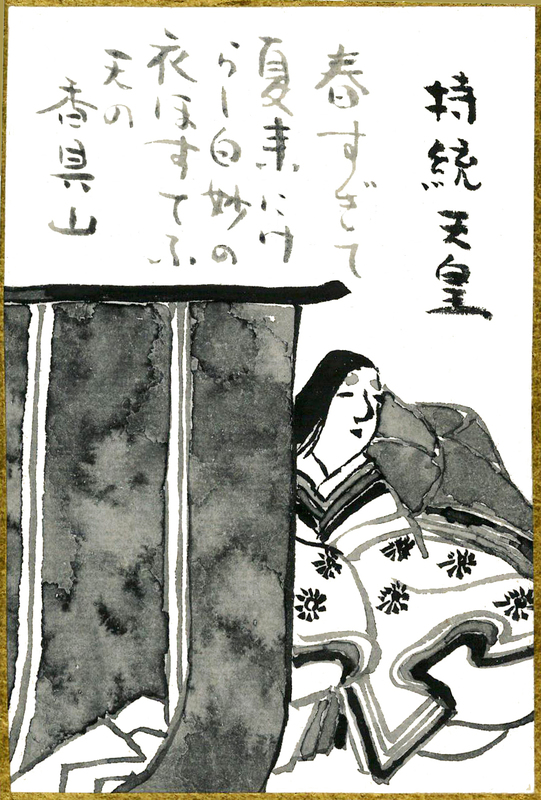 持統天皇
春すぎて
夏来にけ
らし白妙の
衣ほすてふ
天の
香具山